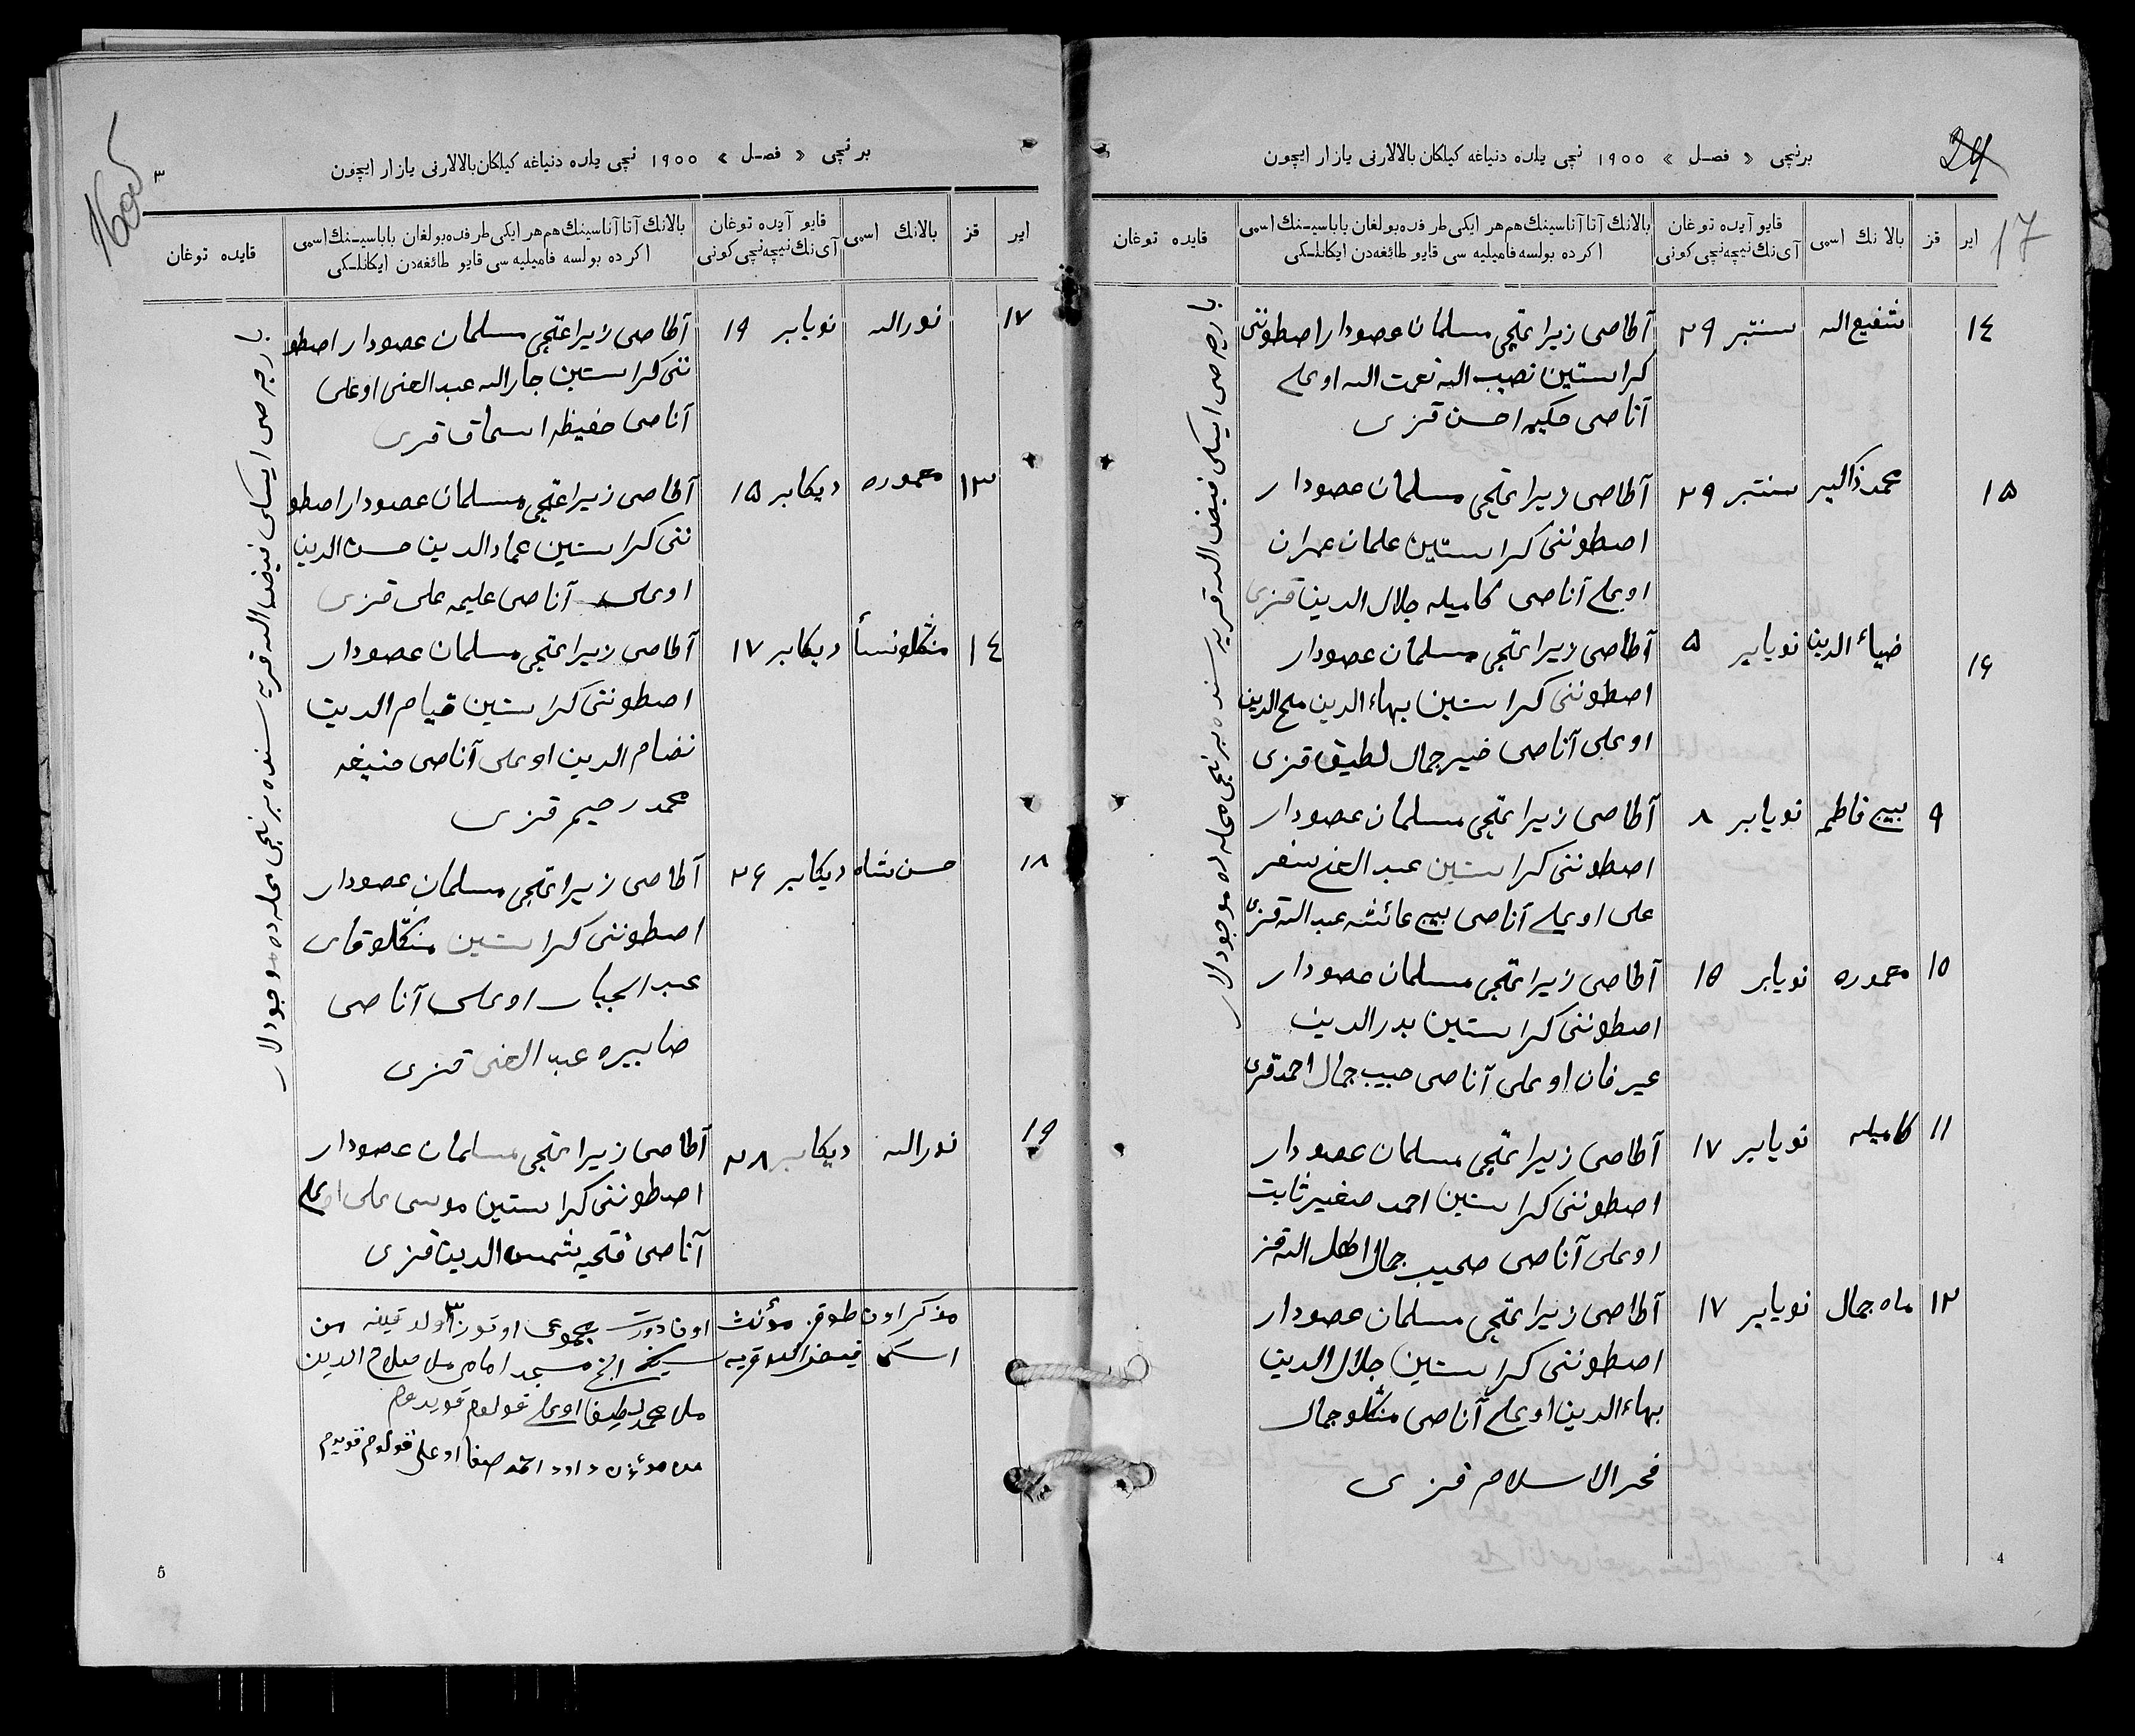 برنچی « فصل » ۱۹۰۰ نچی یلده دنیاغه کیلکان بالالارنی یازار ایچون
24
17
ایر
قز
بالا نك اسمی
قایو آیده توغان
آی نك نیچه نچی کونی
بالانك آتا آناسینك هم هر ایکی طرفده بولغان باباسینك اسمی
اکرده بولسه فامیلیه سی قایو طائفه‌دن ایکانلکی
قایده توغان
۱٤ شفیع الله سنتبر ۲۹ آطاصی زیراعتچی مسلمان عصودار اصطوننی
کراستین نصیب الله نعمت الله اوغلی
آناصی حکیمه احسن قزی
۱۵ محمد ذاکر سنتبر ۲۹ آطاصی زیراعتچی مسلمان عصودار
اصطوننی کراستین علمان عمران
اوغلی آناصی کامیله جلال الدین قزی
۱۶ ضیاء الدین نویابر ۵ آطاصی زیراعتچی مسلمان عصودار
اصطوننی کراستین بهاء الدین
اوغلی آناصی خیر جمال لطیف قزی
۹ بیبی فاطمه نویابر ۸ آطاصی زیراعتچی مسلمان عصودار
اصطوننی کراستین عبد الغنی سفر
علی اوغلی آناصی بیبی عائشه عبد الله قزی
۱۰ معموره نویابر ۱۵ آطاصی زیراعتچی مسلمان عصودار
اصطوننی کراستین بدر الدین
عیرفان اوغلی آناصی حبیب جمال احمد قزی
۱۱ کامیله نویابر ۱۷ آطاصی زیراعتچی مسلمان عصودار
اصطوننی کراستین احمد صفیر ثابت
اوغلی آناصی صحیب جمال اهل الله قز
۱۲ ماه جمال نویابر ۱۷ آطاصی زیراعتچی مسلمان عصودار
اصطوننی کراستین جلال الدین
بهاء الدین اوغلی آناصی منکلو جمال
فخر الاسلام قزی
بارچه صی ایسکی فیض الله قریه سنده برنچی محله ده موجودلار
4
برنچی « فصل » ۱۹۰۰ نچی یلده دنیاغه کیلکان بالالارنی یازار ایچون
۳
ایر
قز
بالانك اسمی
قایو آیده توغان
آی نك نیچه نچی کونی
بالانك آتا آناسینك هم هر ایکی طرفده بولغان باباسینك اسمی
اکرده بولسه فامیلیه سی قایو طائفه‌دن ایکانلکی
قایده توغان
۱۷ نور الله نویابر ۱۹ آطاصی زیراعتچی مسلمان عصودار اصطو
ننی کراستین جار الله عبد الغنی اوغلی
آناصی حفیظه اسحاق قزی
۱۳ معموره دیکابر ۱۵ آطاصی زیراعتچی مسلمان عصودار اصطو
ننی کراستین عماد الدین حسن الدین
اوغلی آناصی علیمه علی قزی
۱٤ منكلو نسأ دیکابر ۱۷ آطاصی زیراعتچی مسلمان عصودار
اصطوننی کراستین قیام الدین
نضام الدین اوغلی آناصی حنیفه
محمد رحیم قزی
۱۸ حسن شاه دیکابر ۲۶ آطاصی زیراعتچی مسلمان عصودار
اصطوننی کراستین منكلو قای
عبد الجبار اوغلی آناصی
صابیره عبد الغنی قزی
۱۹ نور الله دیکابر ۲۸ آطاصی زیراعتچی مسلمان عصودار
اصطوننی کراستین موسی علی اوغلی
آناصی فتحیه شمس الدین قزی
مذکر اون طوقز مؤنث اون دورت مجموعی اوتوز ۳
اسکی فیض الله قریه مسجد امامی ملا صلاح الدین
ملا محمد لطیف اوغلی قولوم قویدم
مؤذن داود احمد صفا اوغلی قولوم قویدم
بارچه صی ایسکی فیض الله قریه سنده برنچی محله ده موجودلار
5